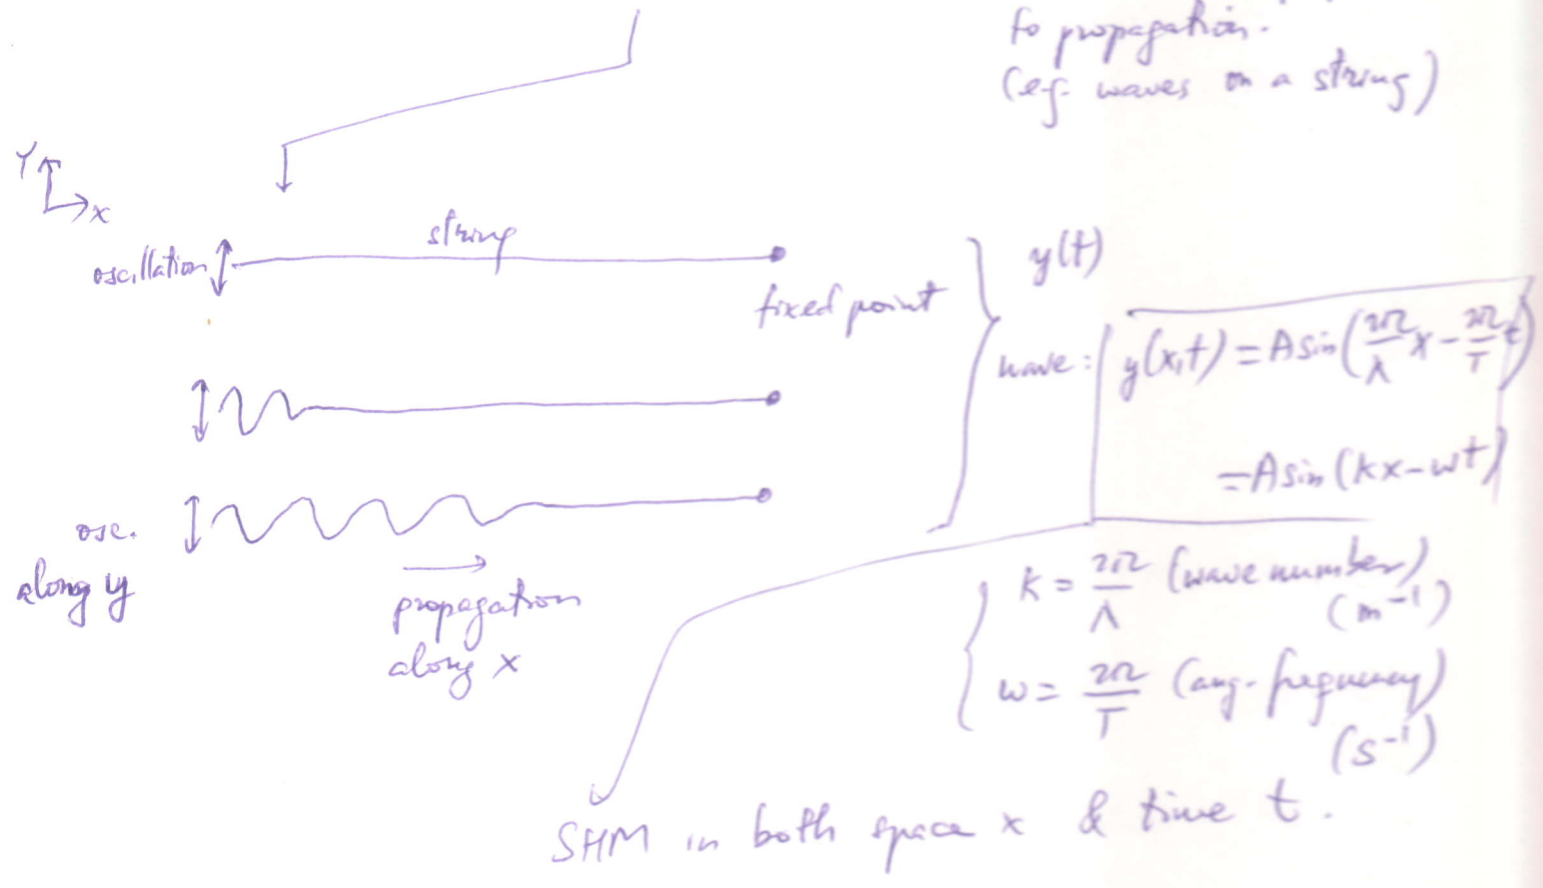 to propagation.
(e.g. waves on a string)
Y
x
oscillation
string
fixed point
y(t)
wave: y(x,t) = A sin(2π/λ x - 2π/T t)
= A sin(kx - ωt)
osc.
along y
propagation
along x
k = 2π/λ (wave number)
(m⁻¹)
ω = 2π/T (ang. frequency)
(s⁻¹)
SHM in both space x & time t.